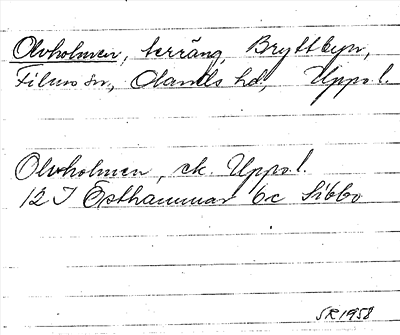 Olvholmen, terräng, Bryttbyn,
Films sn, Olands hd, Uppo. l.
Olvholmen, ek. Uppo. l.
12 I Östhammar 6c Sibbo
SR 1958